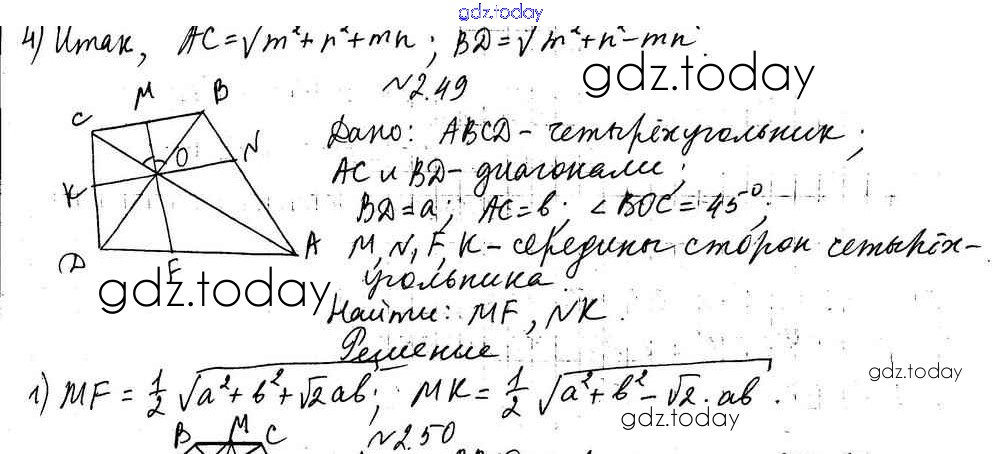 gdz.today
4) Итак, AC=√m²+n²+mn; BD=√m²+n²-mn.
gdz.today
№2.49
C M B
O N
K
D F A
Дано: ABCD - четырёхугольник;
AC и BD - диагонали;
BD=a; AC=b; ∠BOC=45°;
M, N, F, K - середины сторон четырёх-
угольника.
gdz.today
Найти: MF, NK.
Решение
gdz.today
1) MF = 1/2 √a²+b²+√2ab; MK = 1/2 √a²+b²-√2·ab.
gdz.today
B M C №2.50